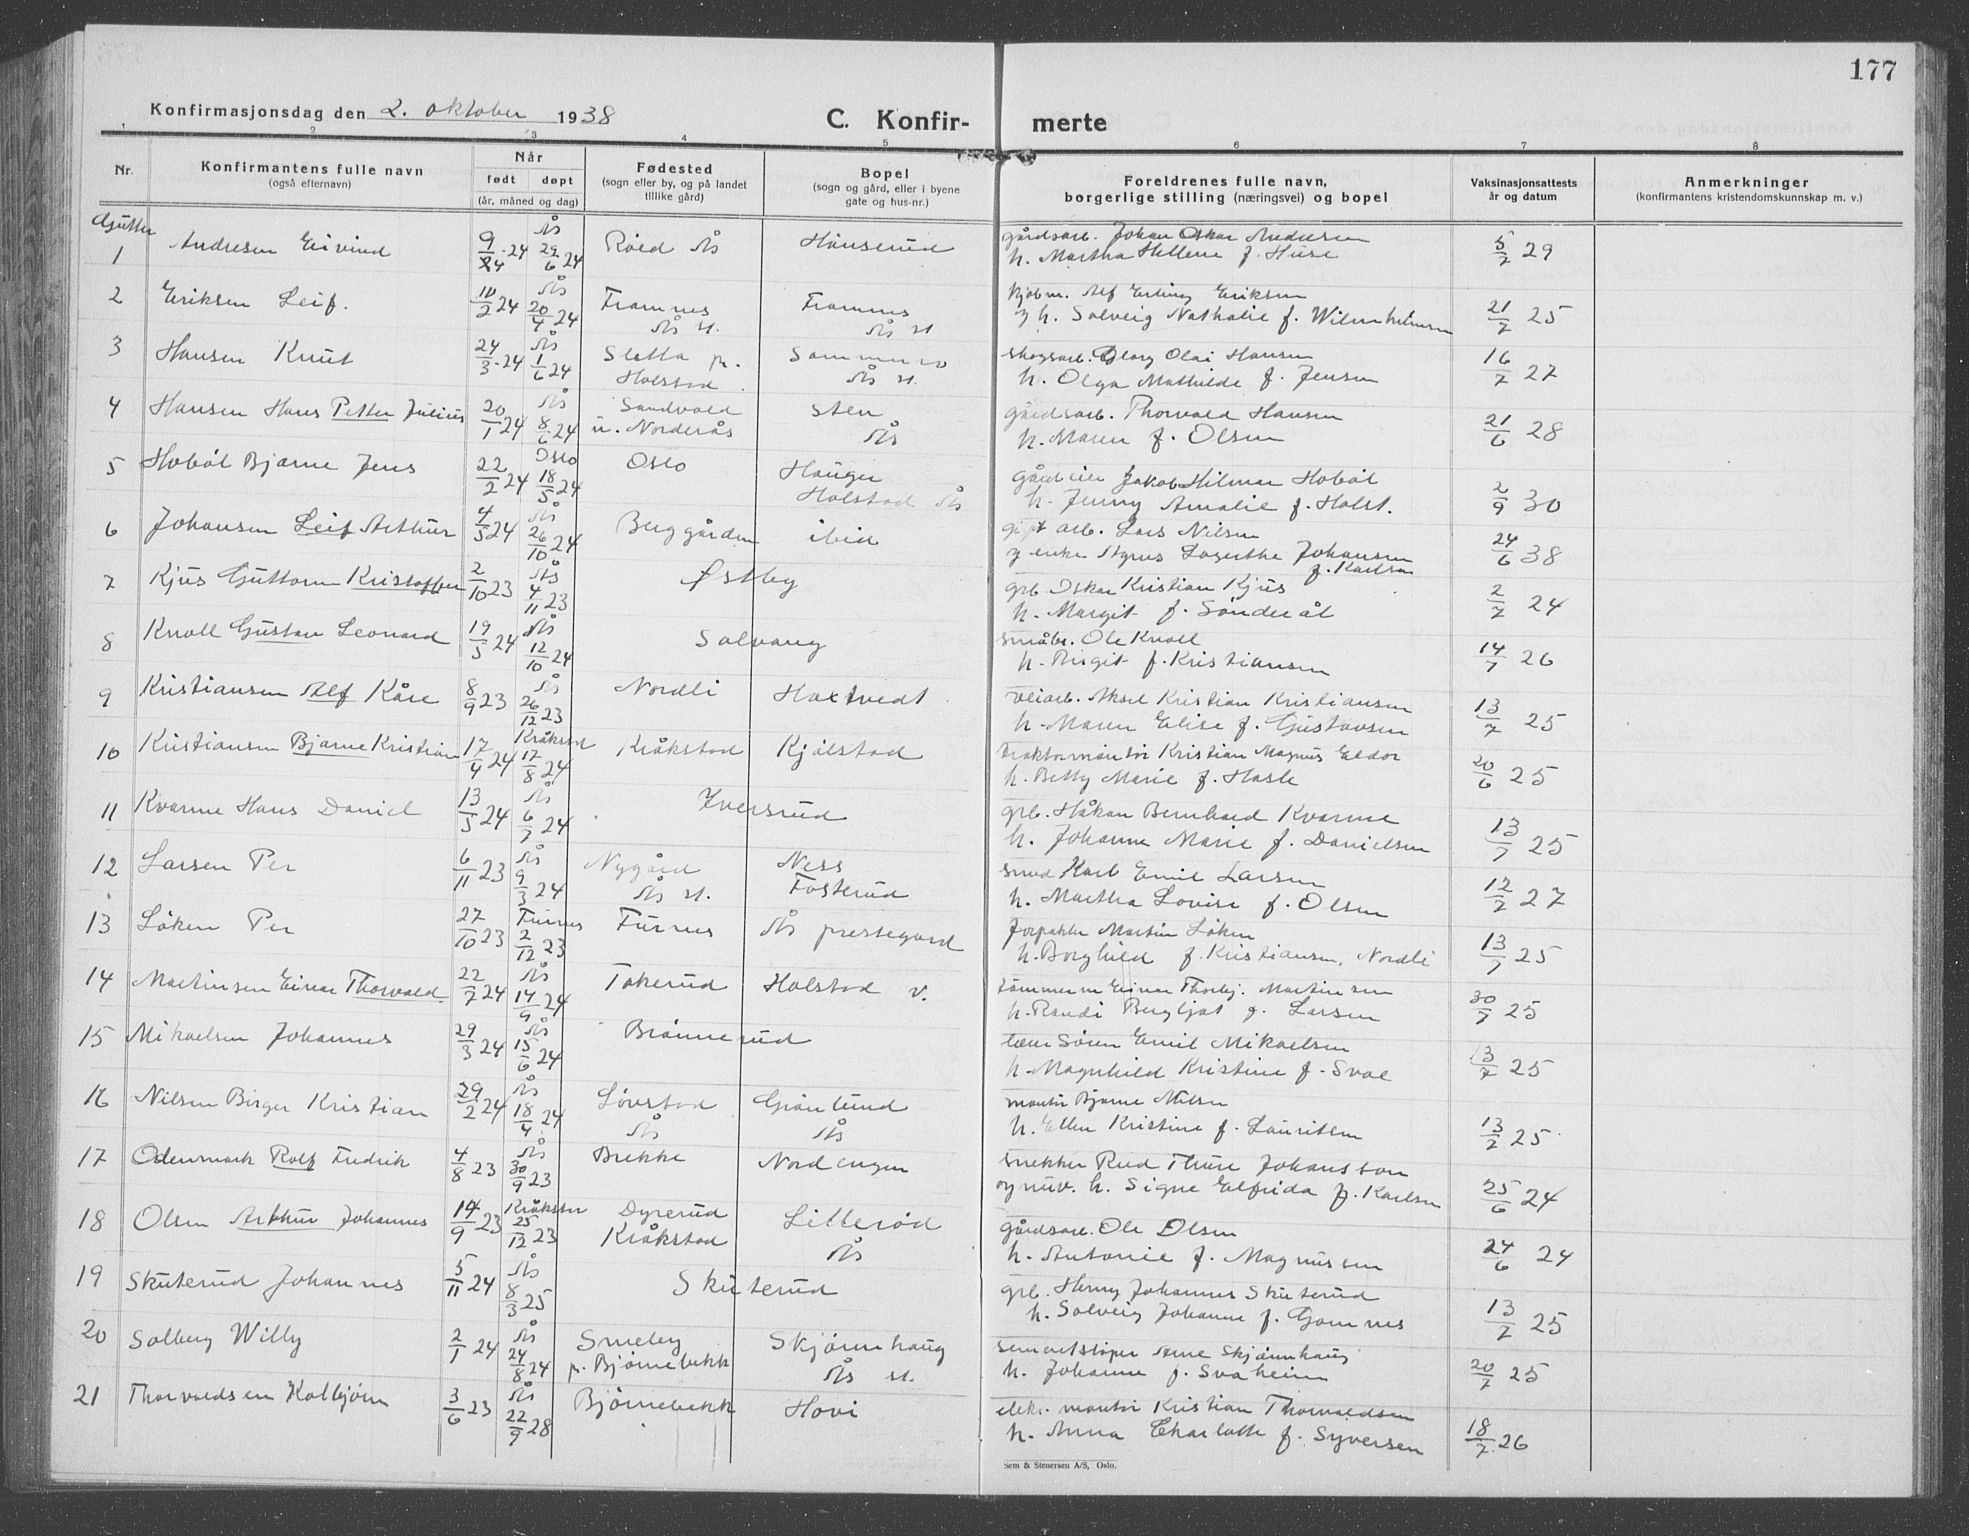 177
Konfirmasjonsdag den 2. oktober 1938
C. Konfir- merte
1 2 3 4 5 6 7 8
Nr. Konfirmantens fulle navn (også efternavn) Når født døpt (år, måned og dag) Fødested (sogn eller by, og på landet tillike gård) Bopel (sogn og gård, eller i byene gate og hus-nr.) Foreldrenes fulle navn, borgerlige stilling (næringsvei) og bopel Vaksinasjonsattests år og datum Anmerkninger (konfirmantens kristendomskunnskap m. v.)
Gutter
1 Andresen Eivind 9/4 24 Ås 29/6 24 Røed Ås Hunserud gårdsarb. Johan Oskar Andresen
h. Martha Hellene f. Huse 5/7 29
2 Eriksen Leif. 10/2 24 Ås 20/4 24 Framnes Ås st. Framnes Ås st kjøbm. Alf Erling Eriksen
og h. Solveig Nathalie f. Wilhelmsen 21/7 25
3 Hansen Knut 24/3 24 Ås 1/6 24 Sletta pr. Holstad Sommero Ås st. skogsarb. Georg Olai Hansen
h. Olga Mathilde f. Jensen 16/7 27
4 Hansen Hans Petter Julius 20/1 24 Ås 8/6 24 Sandvold u. Norderås Sten Ås gårdsarb. Thorvald Hansen
h. Maren f. Olsen 21/6 28
5 Hobøl Bjarne Jens 22/2 24 Oslo 18/5 24 Oslo Hauger Holstad Ås gårdeier Jakob Hilmar Hobøl
h. Jenny Amalie f. Holst. 2/9 30
6 Johansen Leif Arthur 4/5 24 Ås 26/10 24 Berggården ibid gift arb. Lars Nilsen
og enke Agnes Lagertha Johansen
f. Karlsen 24/6 38
7 Kjus Guttorm Kristoffer 2/10 23 Ås 4/11 23 Østby grb. Oskar Kristian Kjus
h. Margit f. Sønderål 2/7 24
8 Knoll Gustav Leonard 19/5 24 Ås 12/10 24 Solvang småbr. Ole Knoll
h. Birgit f. Kristiansen 14/7 26
9 Kristiansen Alf Kåre 8/9 23 Ås 26/12 23 Nordli Haxtvedt veiarb. Aksel Kristian Kristiansen
h. Maren Elise f. Gustavsen 13/7 25
10 Kristiansen Bjarne Kristian 17/4 24 Kråkstad 17/8 24 Kråkstad Kjølstad traktormontør Kristian Magnus Eldor
h. Betty Marie f. Hasle 20/6 25
11 Kvarme Hans Daniel 13/5 24 Ås 6/7 24 Iversrud grb. Håkon Bernhard Kvarme
h. Johanne Marie f. Danielsen 13/7 25
12 Larsen Per 6/11 23 Ås 9/3 24 Nygård Ås st. Ness Fosterud smed Karl Emil Larsen
h. Martha Lovise f. Olsen 12/7 27
13 Løken Per 27/10 23 Furnes 2/12 23 Furnes Ås prestegård forpakter Martin Løken
h. Borghild f. Kristiansen, Nordli 13/7 25
14 Martinsen Einar Thorvald 22/7 24 Ås 14/9 24 Takerud Holstad v. tømmerm Einar Thorbj. Martinsen
h. Randi Bergljot f. Larsen 30/7 25
15 Mikaelsen Johannes 29/3 24 Ås 15/6 24 Brønnerud lærer Søren Emil Mikaelsen
h. Magnhild Kristine f. Svae 13/7 25
16 Nilsen Birger Kristian 29/2 24 Ås 18/4 24 Løvstad Ås Grønlund Ås montør Bjarne Nilsen
h. Ellen Kristine f. Lauritsen 13/7 25
17 Odenmark Rolf Fredrik 4/8 23 Ås 30/9 23 Brekke Nordengen snekker Reed Thure Johansson
og nuv. h. Signe Elfrida f. Karlsen 25/6 24
18 Olsen Arthur Johannes 14/9 23 Kråkstad 25/12 23 Dyrerud Kråkstad Lillerød Ås gårdsarb. Ole Olsen
h. Antonie f. Magnussen 24/6 24
19 Skuterud Johannes 5/11 24 Ås 8/3 25 Skuterud grb. Henry Johannes Skuterud
h. Solveig Johanne f. Gomnes 13/7 25
20 Solberg Willy 2/1 24 Ås 24/8 24 Sneeby p. Bjørnebekk Skjønnhaug Ås st. sementstøper Arne Skjønnhaug
h. Johanne f. Svaheim 20/7 25
21 Thorvaldsen Kolbjørn 3/6 23 Ås 22/9 28 Bjørnebekk Hovi elekr. montør Kristian Thorvaldsen
h. Anna Charlotte f. Syversen 18/7 26
Sem & Stenersen A/S, Oslo.